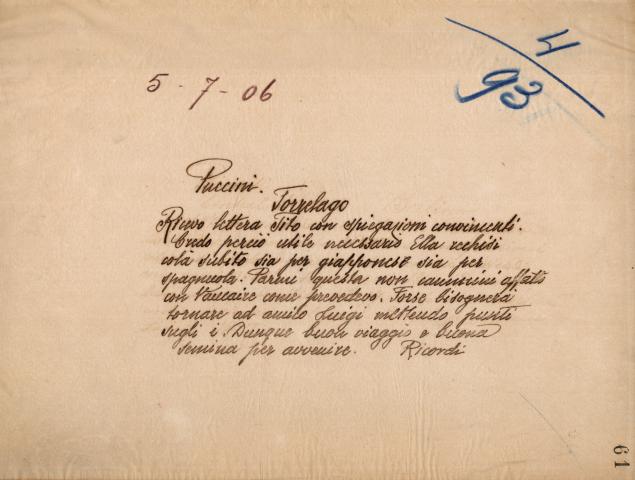 4
93
5-7-06
Puccini.
Torrelago
Ricevo lettera Tito con spiegazioni convincenti.
Credo perciò utile necessario Ella rechisi
colà subito sia per giapponese sia per
spagnuola. Parmi questa non cammini affatto
con Vaucaire come prevedevo. Forse bisognerà
tornare ad amico Luigi mettendo punti
sugli i. Dunque buon viaggio e buona
semina per avvenire. Ricordi
61